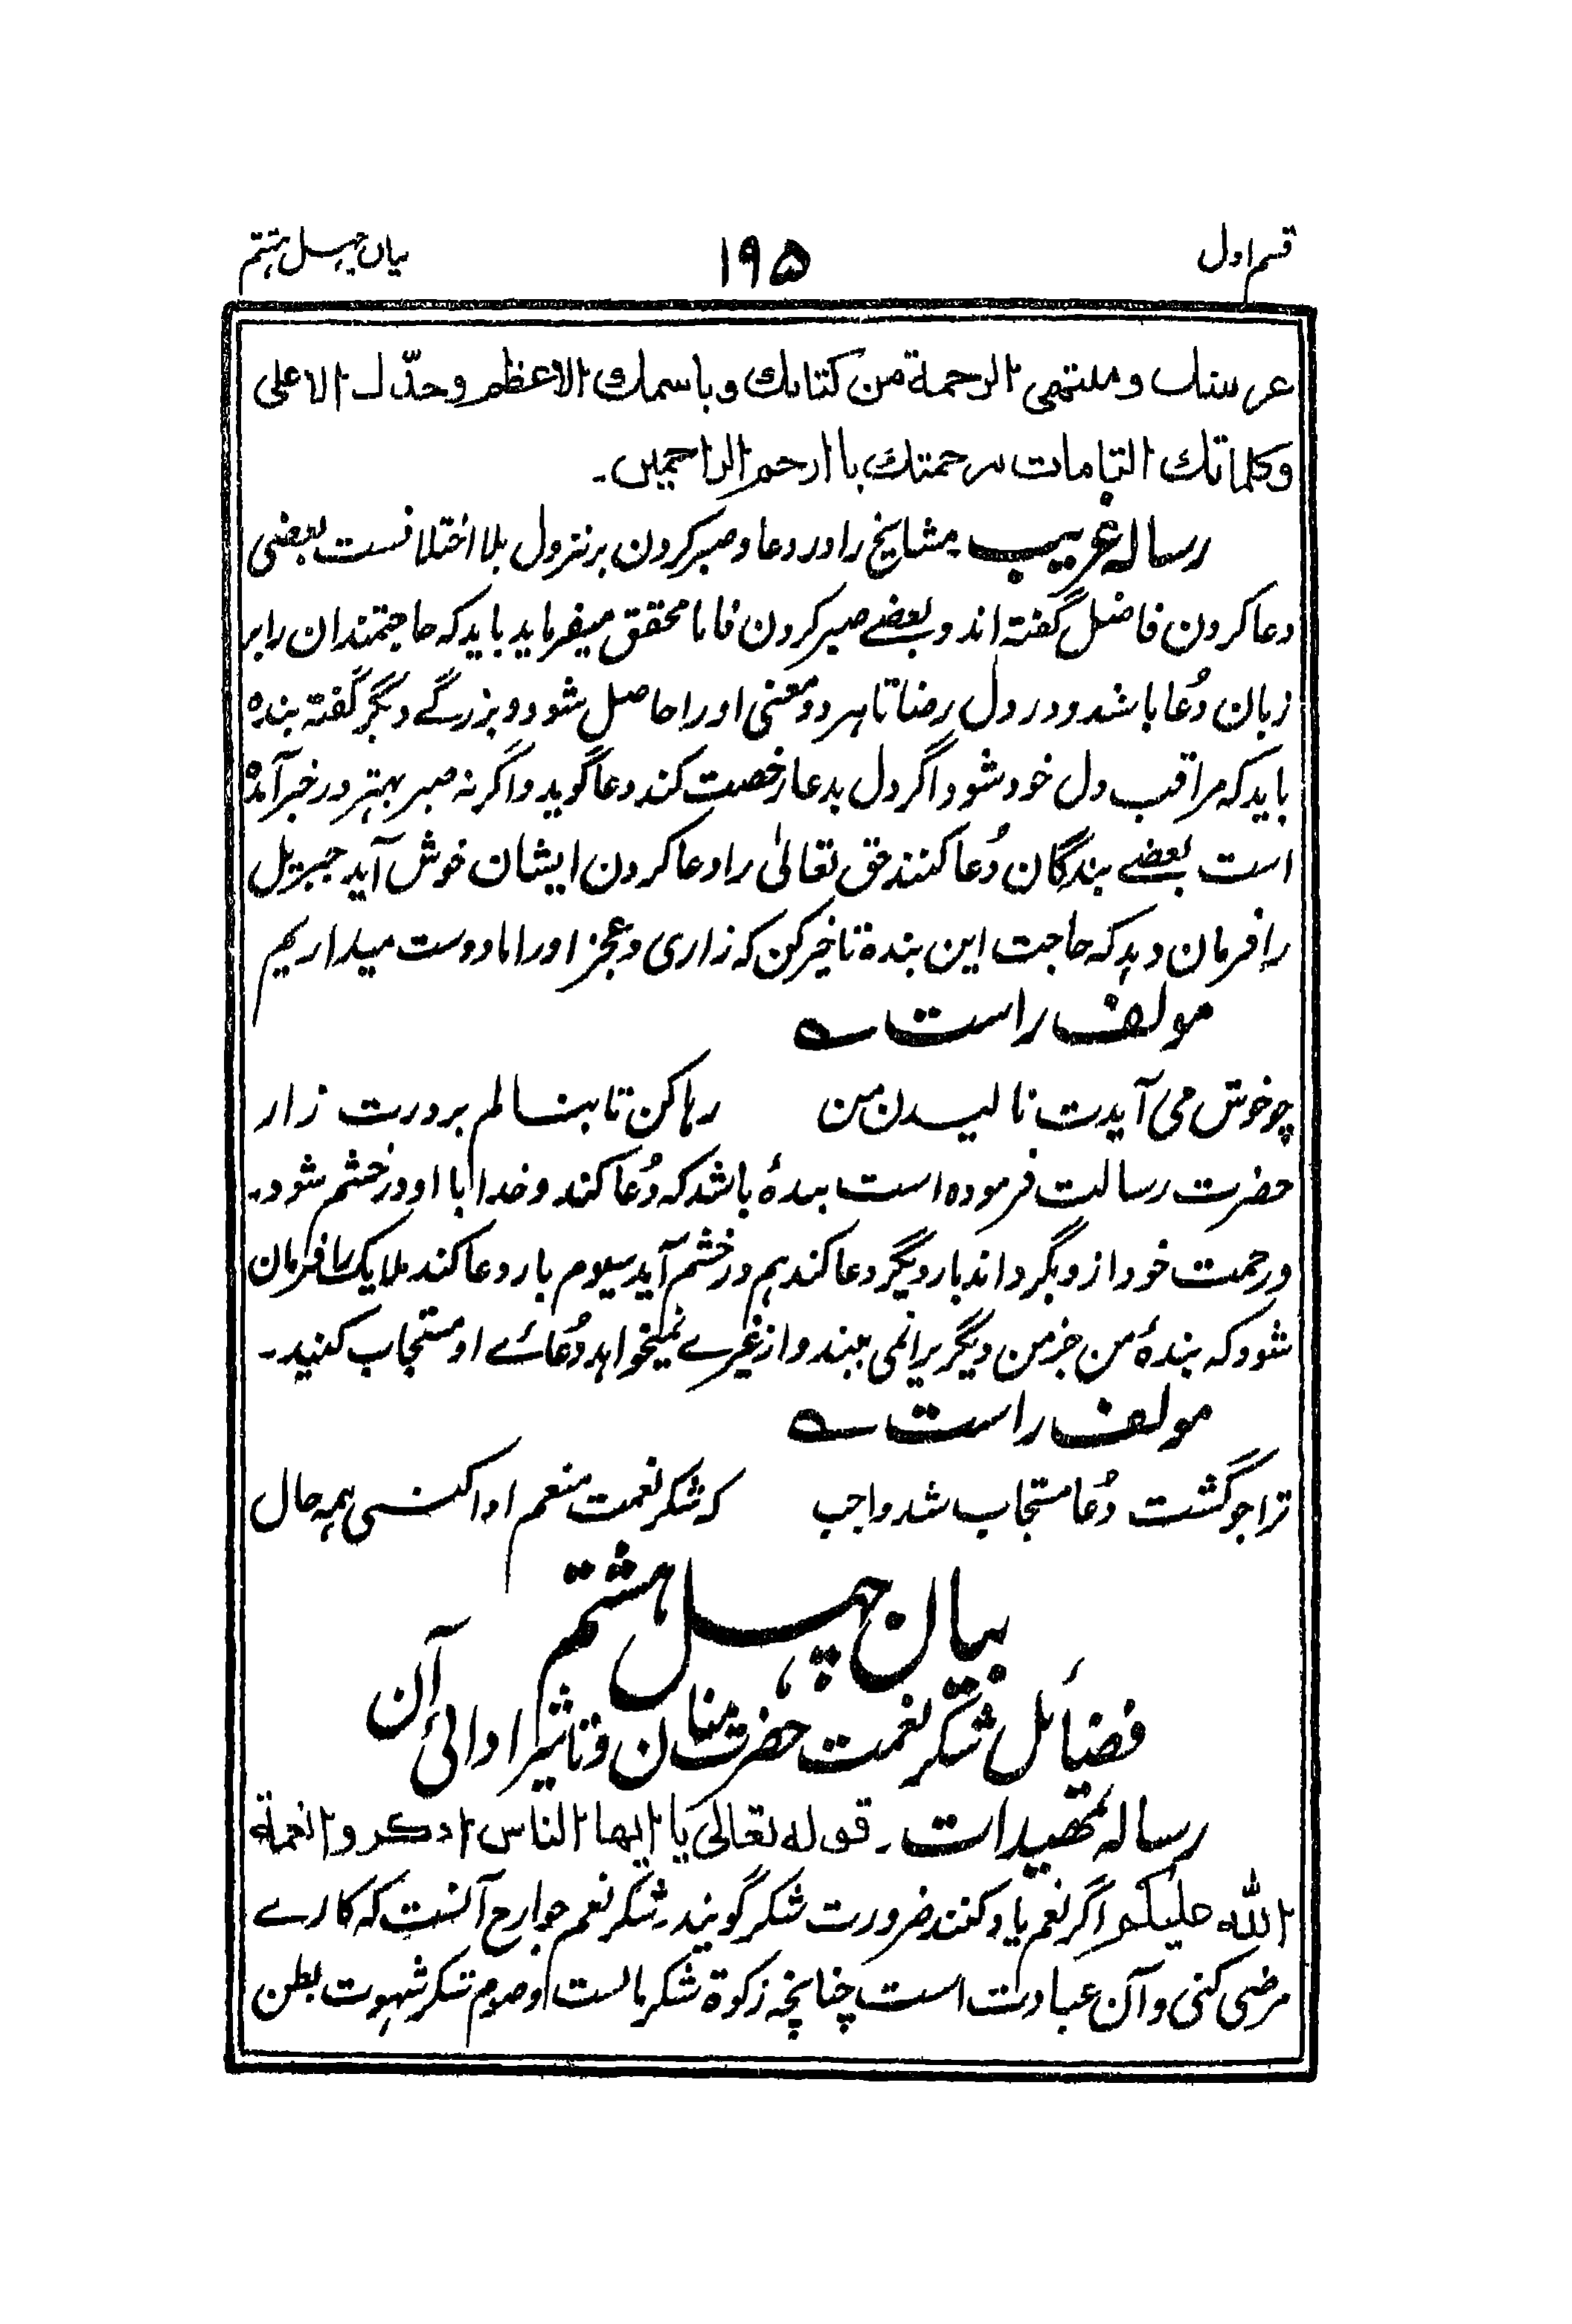 قسم اول ۱۹۵ بیان چہل ہشتم
عرشك و منتهى الرحمة من كتابك و باسمك الاعظم وجدّك الاعلى
وكلماتك التامات برحمتك يا ارحم الراحمين۔
رسالہ غریب مشایخ را در دعا و صبر کردن بر نزول بلا اختلافست بعضی
دعا کردن فاضل گفته اند و بعضے صبر کردن فاما محقق میفرماید باید که حاجتمندان را بر
زبان دُعا باشد و در دل رضا تا ہر دو معنی او را حاصل شود و بزرگے دیگر گفته بنده
باید که مراقب دل خود شود اگر دل بدعا رخصت کند دعا گوید و اگر نه صبر بہتر در خبر آمده
است بعضے بندگان دُعا کنند حق تعالیٰ را دعا کردن ایشان خوش آید جبریل
را فرمان دہد که حاجت این بنده تاخیر کن که زاری و عجز او را ما دوست میداریم
مولف راست ؎
چو خوش می آیدت نالیدن من رہا کن تا بنالم بر درت زار
حضرت رسالت فرموده است بندۂ باشد که دُعا کند و خدا با او در خشم شود۔
و رحمت خود ازو بگرداند بار دیگر دعا کند ہم در خشم آید سیوم بار دعا کند ملایک را فرمان
شود که بندۂ من جز من دیگریرا نمی بیند و از غیرے نمیخواہد دُعائے او مستجاب کنید۔
مولف راست ؎
ترا چو گشت دُعا مستجاب شد واجب که شکر نعمت منعم ادا کنسی ہمه حال
بیان چہل ہشتم
فضائل شکر نعمت حضرت منان و تاثیر ادائی آن
رسالہ تمہیدات۔ قوله تعالى يا ايها الناس اذكروا نعمة
الله عليكم اگر نعم یاد کنند ضرورت شکر گویند۔ شکر نعم جوارح آنست که کارے
مرضی کنی و آن عبادت است چنانچه زکوة شکر مالست و صوم شکر شہوت بطن